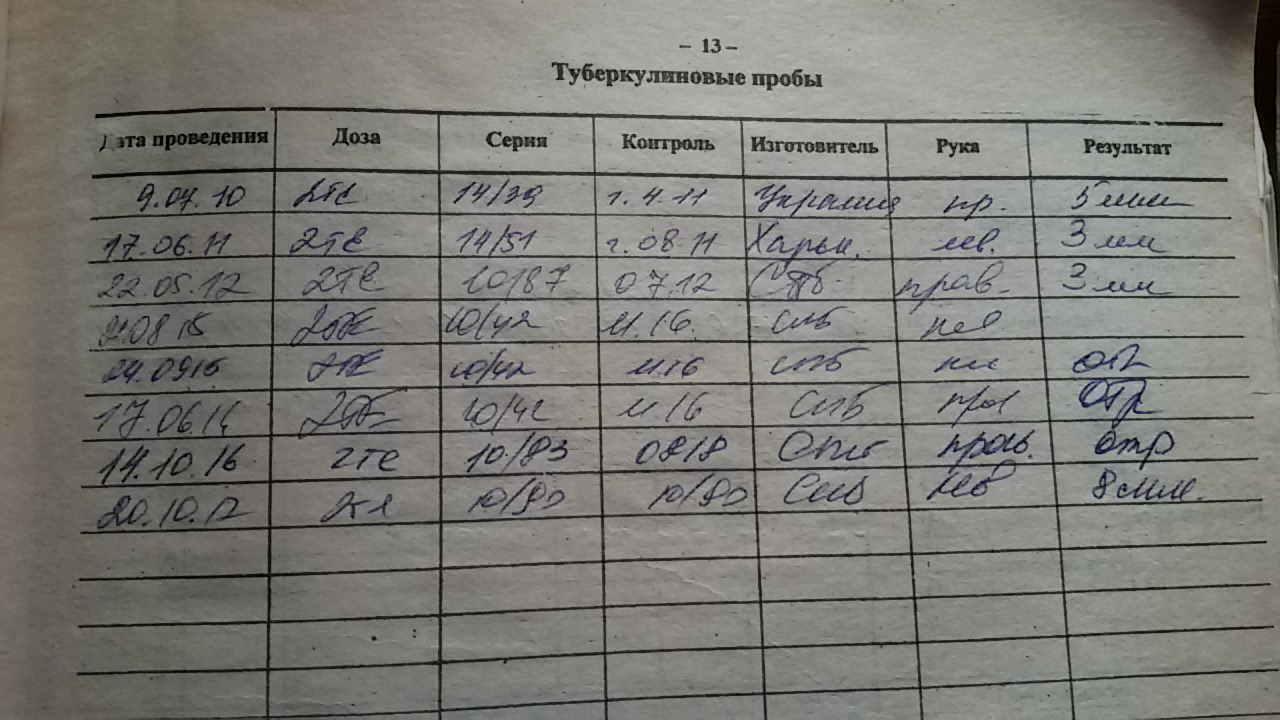 – 13 –
Туберкулиновые пробы
Дата проведения Доза Серия Контроль Изготовитель Рука Результат
9.07.10 2ТЕ 14/39 г. 4.11 Украина пр. 5 мм
17.06.11 2ТЕ 14/51 г. 08.11 Харьк. лев. 3 мм
22.05.12 2ТЕ 10/87 07.12 СПб. прав. 3 мм
08 15 2ТЕ 10/42 11.16. СПб
24.0915 2ТЕ 10/42 11.16 СПб отр
17.06.16 2ТЕ 10/42 11 16 СПб отр
14.10.16 2ТЕ 10/83 0818 СПб прав. отр
20.10.17 2ТЕ 10/90 10/90 СПб лев 8 мм.